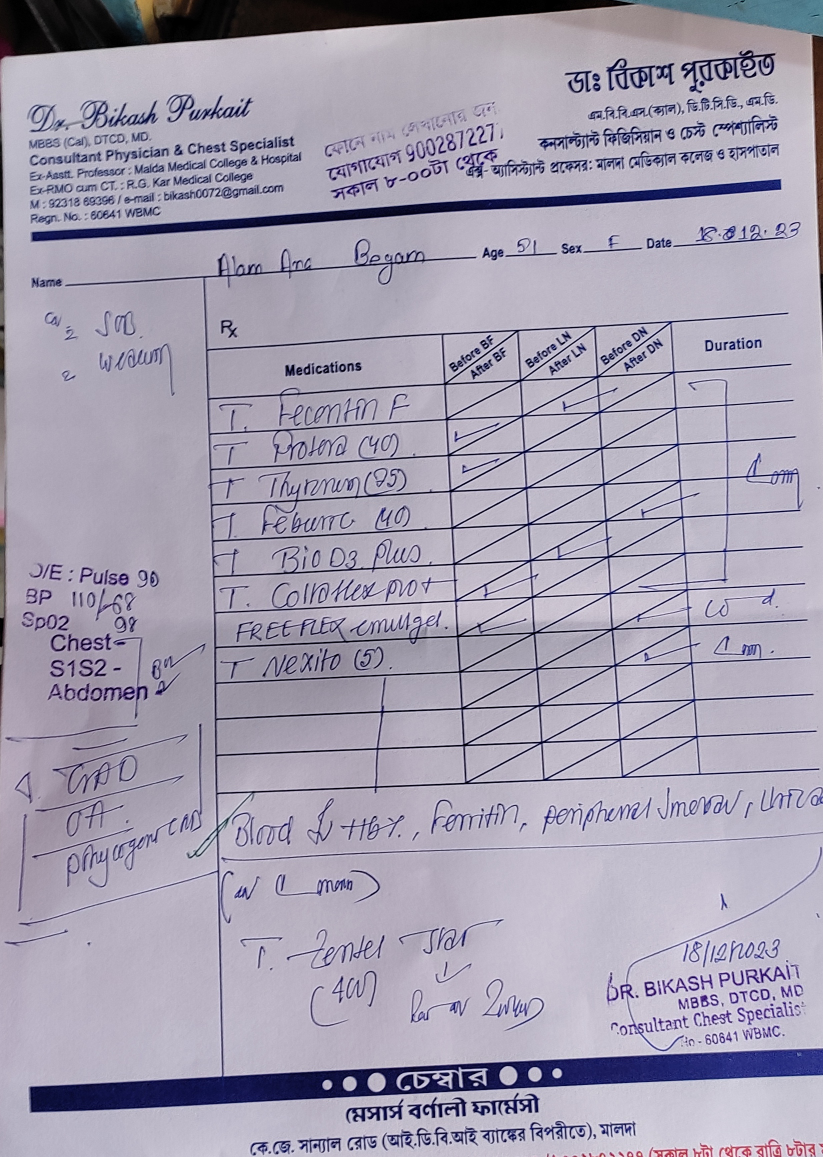 Dr. Bikash Purkait
MBBS (Cal), DTCD, MD.
Consultant Physician & Chest Specialist
Ex-Asstt. Professor : Malda Medical College & Hospital
Ex-RMO cum CT. : R.G. Kar Medical College
M : 92318 69396 / e-mail : bikash0072@gmail.com
Regn. No. : 60641 WBMC
ডাঃ বিকাশ পুরকাইত
এম.বি.বি.এস.(ক্যাল), ডি.টি.সি.ডি., এম.ডি.
কনসালট্যান্ট ফিজিসিয়ান ও চেস্ট স্পেশালিস্ট
এক্স- অ্যাসিস্ট্যান্ট প্রফেসর: মালদা মেডিক্যাল কলেজ ও হাসপাতাল
ফোনে নাম লেখানোর জন্য
যোগাযোগ 9002872271
সকাল ৮-০০টা থেকে
Name Alam Ara Begam Age 51 Sex F Date 18.12.23
SOB
Rx
Medications Before BF After BF Before LN After LN Before DN After DN Duration
T. Fecontin F
T (40)
T
T (40)
T Bio D3 Plus
T.
FREE FLEX emulgel.
T Nexito (5).
O/E : Pulse 90
BP 110/68
Sp02 98
Chest-
S1S2 -
Abdomen
GAD
OA
Blood Hb%, Ferritin, peripheral smear,
T. Zentel
(400)
18/12/2023
DR. BIKASH PURKAIT
MBBS, DTCD, MD
Consultant Chest Specialist
No - 60641 WBMC.
চেম্বার
মেসার্স বর্ণালী ফার্মেসী
কে.জে. সান্যাল রোড (আই.ডি.বি.আই ব্যাঙ্কের বিপরীতে), মালদা
(সকাল ৮টা থেকে রাত্রি ৮টার